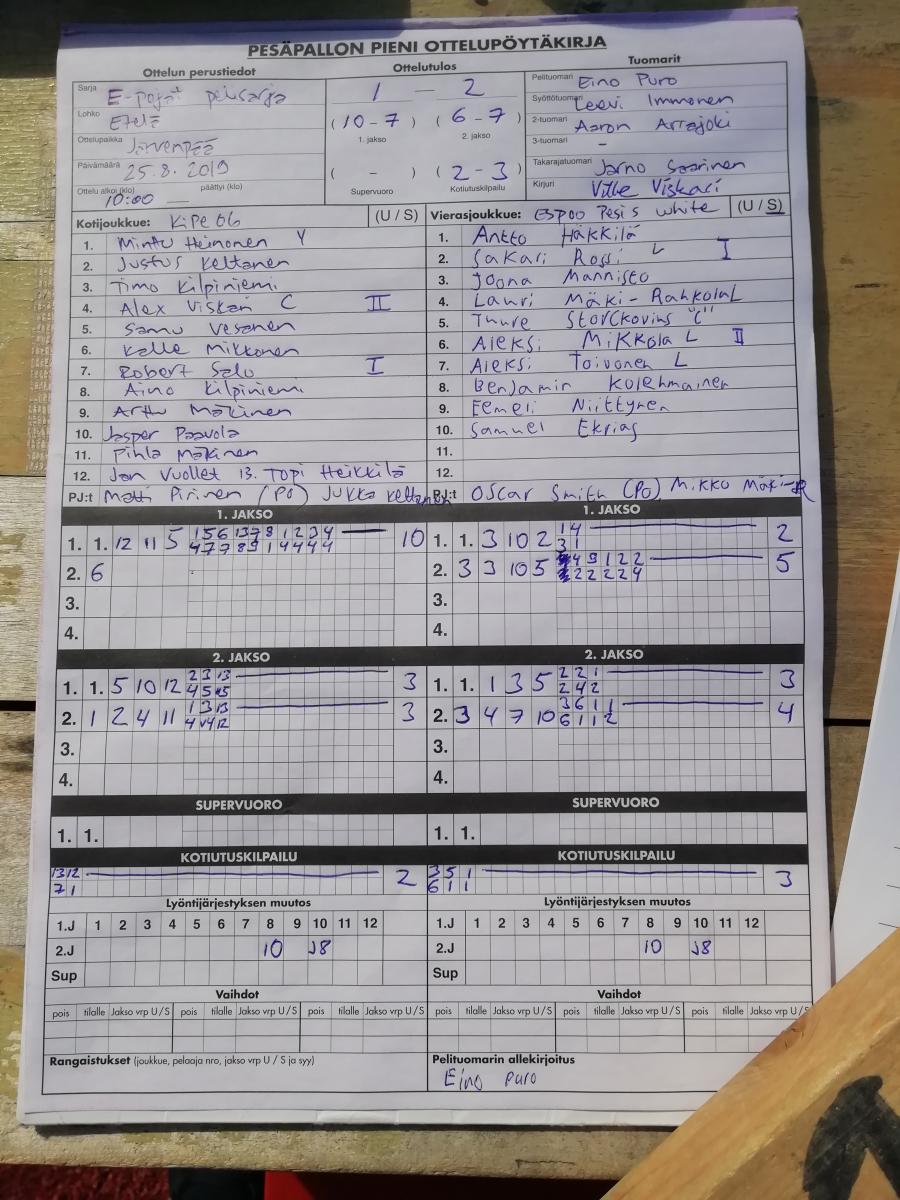 PESÄPALLON PIENI OTTELUPÖYTÄKIRJA
Ottelun perustiedot
Sarja E-pojat pelisarja
Lohko Etelä
Ottelupaikka Järvenpää
Päivämäärä 25.8.2019
Ottelu alkoi (klo) päättyi (klo)
10:00
Ottelutulos
1 — 2
(10-7) (6-7)
1. jakso 2. jakso
( - ) (2-3)
Supervuoro Kotiutuskilpailu
Tuomarit
Pelituomari Eino Puro
Syöttötuomari Leevi Immonen
2-tuomari Aaron Arrajoki
3-tuomari -
Takarajatuomari Jarno Saarinen
Kirjuri Ville Viskari
Kotijoukkue: KiPe 06 (U / S)
1. Minttu Heinonen Y
2. Justus Keltanen
3. Timo Kilpiniemi
4. Alex Viskari C II
5. Samu Vesanen
6. Kalle Mikkonen
7. Robert Salo I
8. Aino Kilpiniemi
9. Arttu Mäkinen
10. Jasper Paavola
11. Pihla Mäkinen
12. Jan Vuollet 13. Topi Heikkilä
PJ:t Matti Pirinen (PO) Jukka Keltanen
Vierasjoukkue: Espoo Pesis white (U / S)
1. Antto Häkkilä
2. Sakari Rossi L I
3. Joona Mannisto
4. Lauri Mäki-Rahkola L
5. Thure Storckovius "C"
6. Aleksi Mikkola L II
7. Aleksi Toivonen L
8. Benjamin Kolehmainen
9. Eemeli Niittynen
10. Samuel Ekrias
11.
12.
PJ:t Oscar Smith (PO) Mikko Mäki-R
1. JAKSO
1. 1. 12 11 5 10
2. 6
3.
4.
1. JAKSO
1. 1. 3 10 2 2
2. 3 3 10 5 5
3.
4.
2. JAKSO
1. 1. 5 10 12 3
2. 1 2 4 11 3
3.
4.
2. JAKSO
1. 1. 1 3 5 3
2. 3 4 7 10 4
3.
4.
SUPERVUORO
1. 1.
SUPERVUORO
1. 1.
KOTIUTUSKILPAILU
13 12
7 1
2
KOTIUTUSKILPAILU
3 5 1
6 1 1
3
Lyöntijärjestyksen muutos
1.J 1 2 3 4 5 6 7 8 9 10 11 12
2.J 10 J8
Sup
Lyöntijärjestyksen muutos
1.J 1 2 3 4 5 6 7 8 9 10 11 12
2.J 10 J8
Sup
Vaihdot
pois tilalle Jakso vrp U / S pois tilalle Jakso vrp U / S pois tilalle Jakso vrp U / S
Vaihdot
pois tilalle Jakso vrp U / S pois tilalle Jakso vrp U / S pois tilalle Jakso vrp U / S
Rangaistukset (joukkue, pelaaja nro, jakso vrp U / S ja syy)
Pelituomarin allekirjoitus
Eino Puro